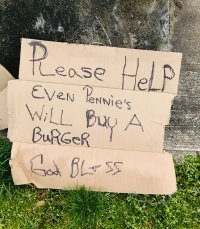 Please HeLP
EVEN Pennie's
WiLL BUY A
BURGER
God BLeSS